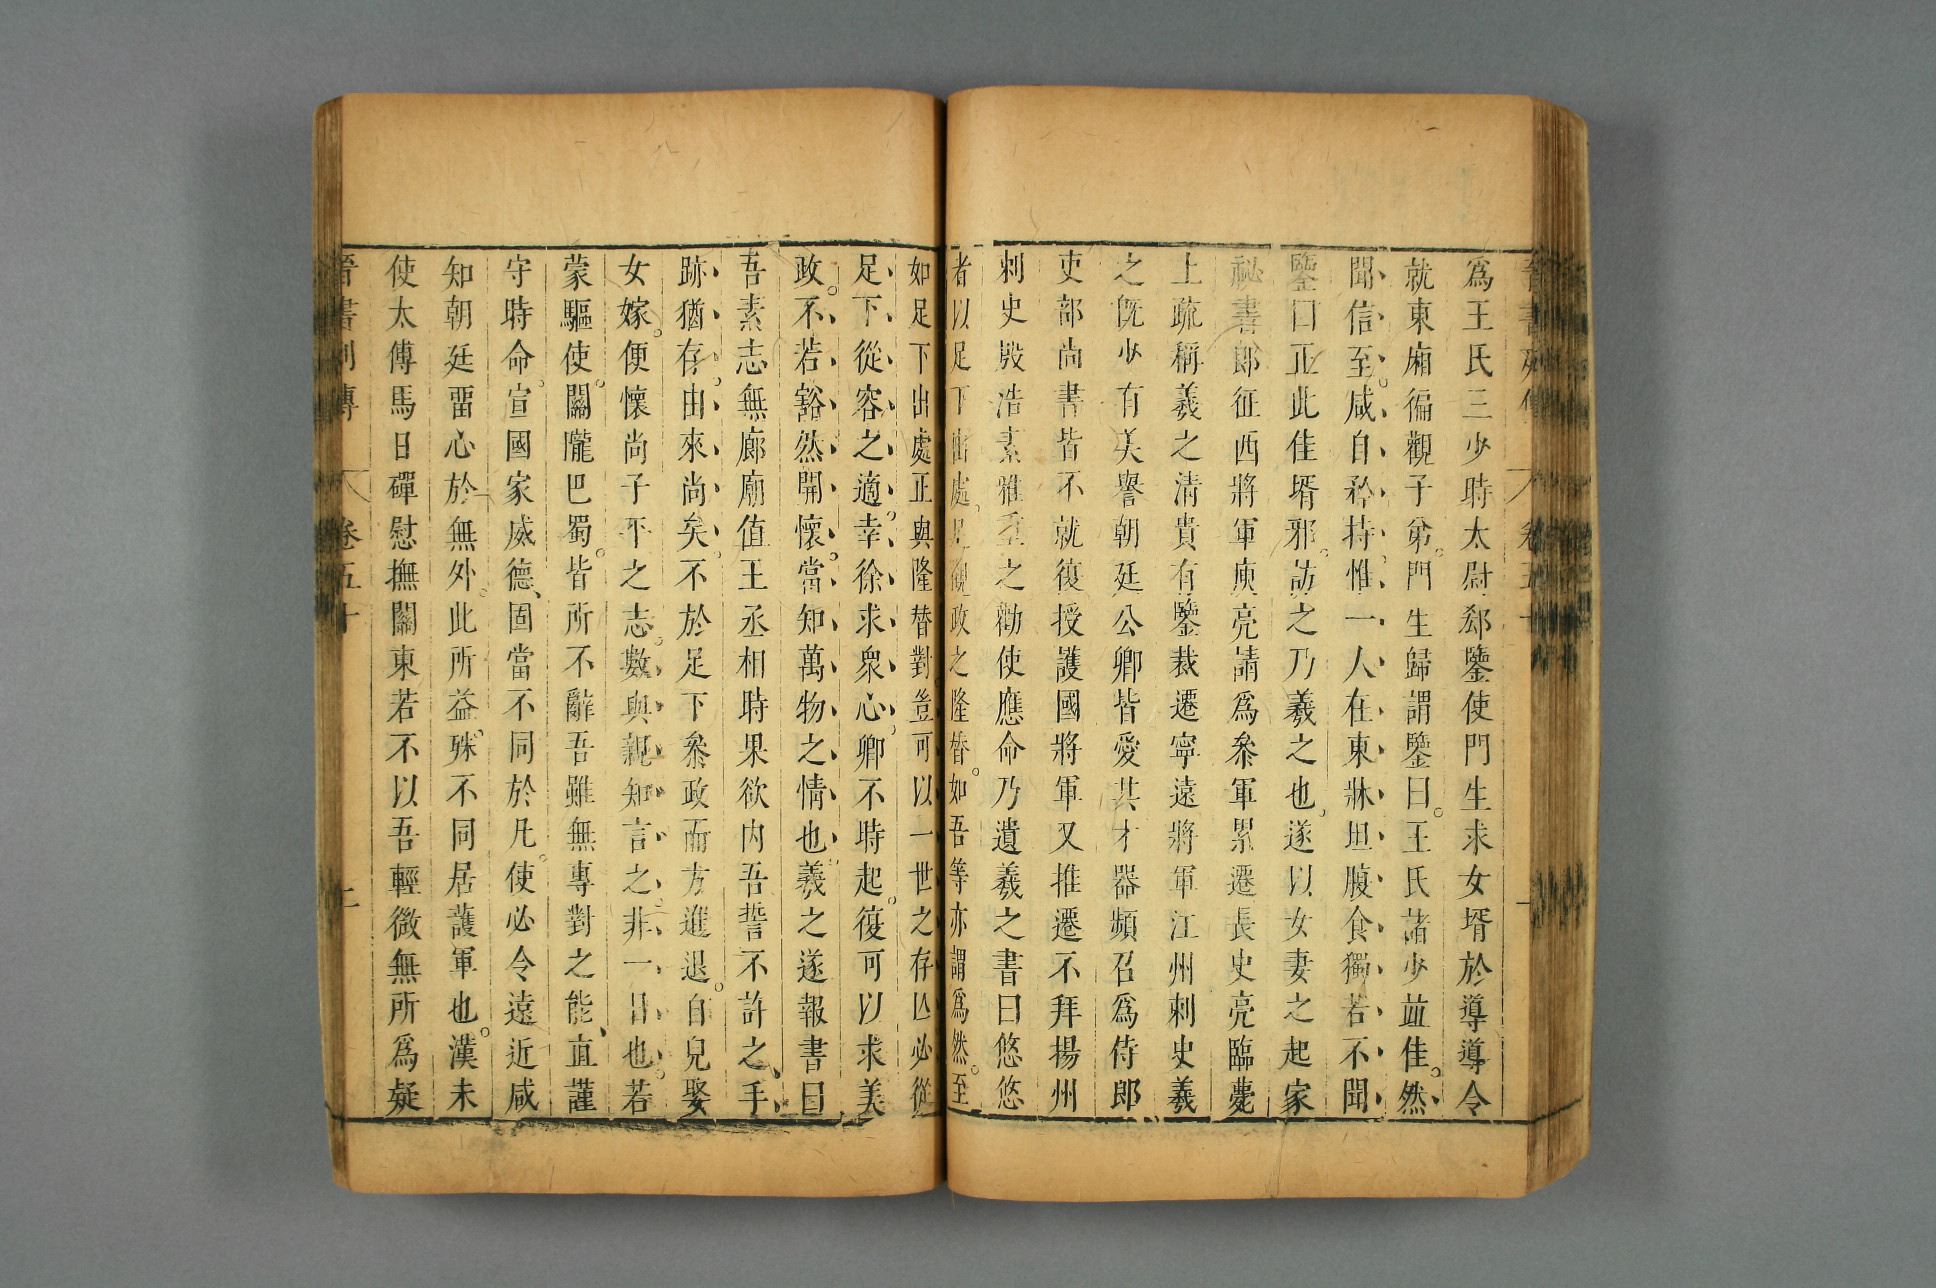 晉書列傳 卷五十
爲王氏三少時太尉郄鑒使門生求女壻於導導令
就東廂徧觀子弟。門生歸謂鑒曰。王氏諸少竝佳。然
聞信至。咸自矜持。惟一人在東牀坦腹食獨若不聞
鑒曰正此佳壻邪。訪之乃羲之也。遂以女妻之起家
祕書郎征西將軍庾亮請爲叅軍累遷長史亮臨薨
上疏稱羲之清貴有鑒裁遷寧遠將軍江州刺史羲
之旣少有美譽朝廷公卿皆愛其才器頻召爲侍郎
吏部尚書皆不就復授護國將軍又推遷不拜揚州
刺史殷浩素雅重之勸使應命乃遺羲之書曰悠悠
者以足下出處。足觀政之隆替。如吾等亦謂爲然。至
如足下出處正與隆替對豈可以一世之存亾必從
足下從容之適。幸徐求衆心。卿不時起。復可以求美
政。不若豁然開懷。當知萬物之情也。羲之遂報書曰
吾素志無廊廟值王丞相時果欲內吾誓不許之、手
跡猶存。由來尚矣。不於足下叅政而方進退。自兒娶
女嫁。便懷尚子平之志。數與親知言之。非一日也。若
蒙驅使。關隴巴蜀。皆所不辭吾雖無專對之能、直謹
守時命。宣國家威德、固當不同於凡。使必令遠近咸
知朝廷畱心於無外。此所益殊、不同居護軍也。漢末
使太傅馬日磾慰撫關東若不以吾輕微無所爲疑
晉書列傳 卷五十